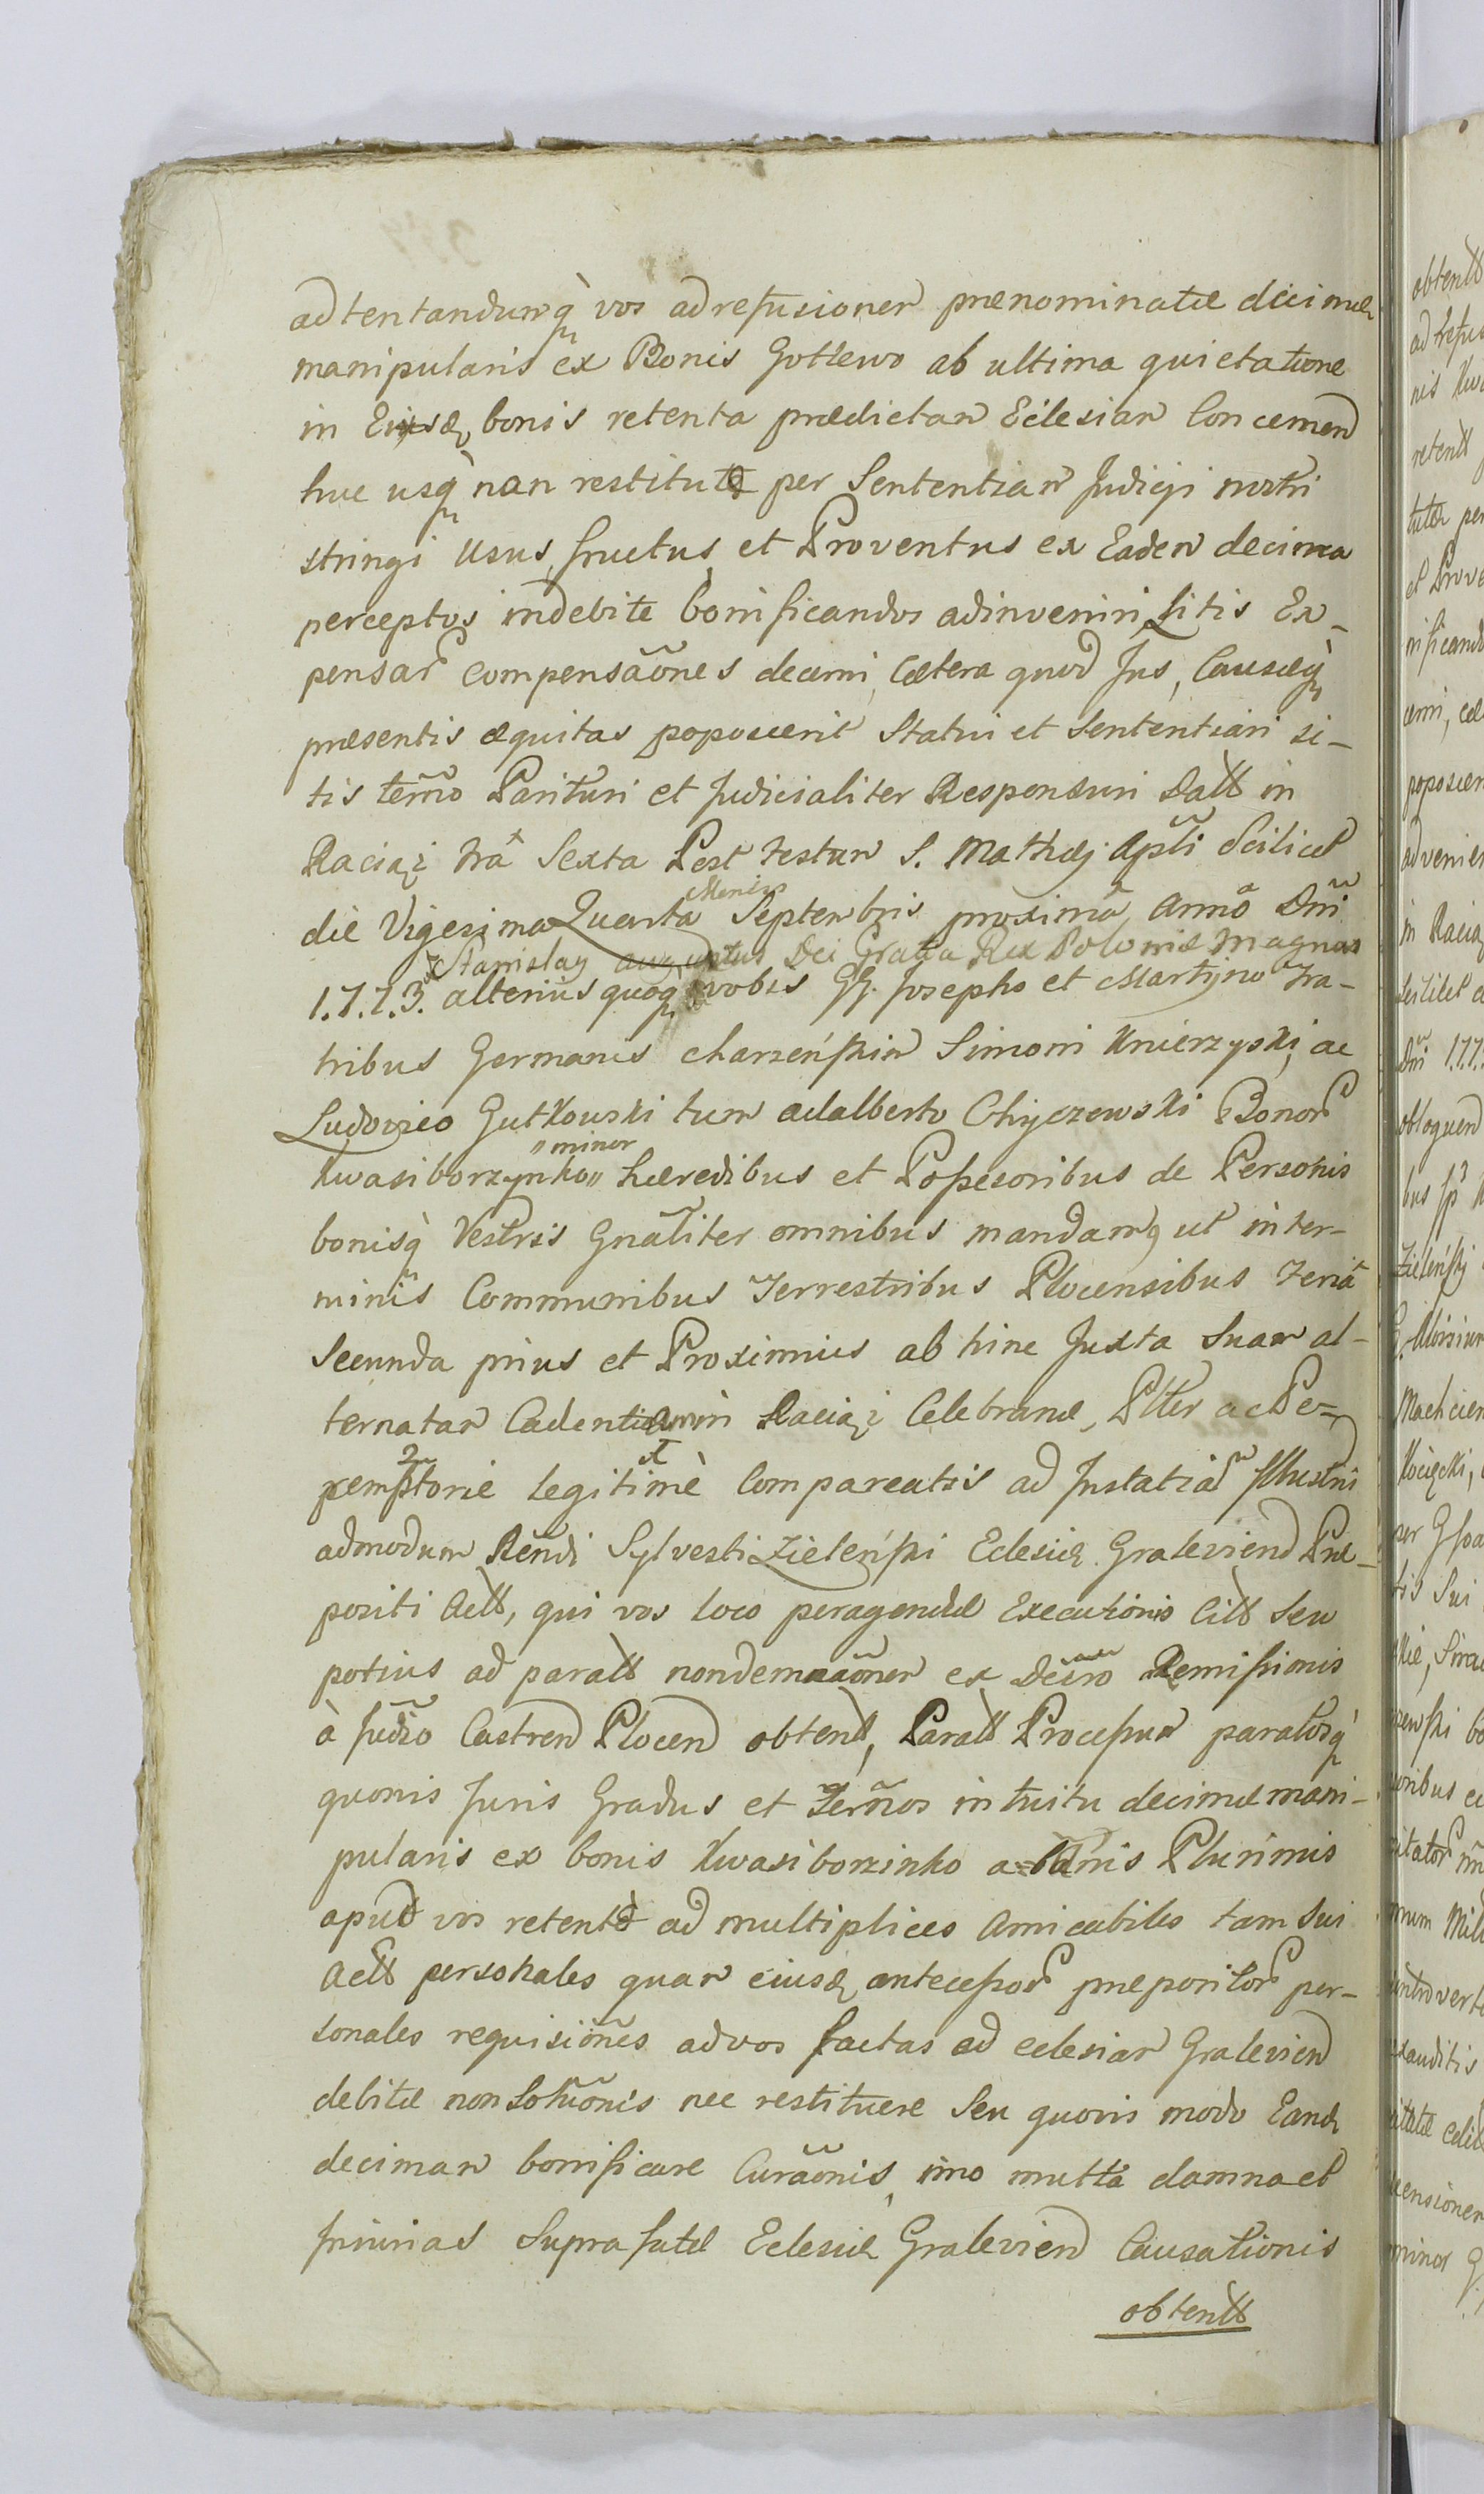 adtentandumq̀ vos adrefusionem prænominatæ decimæ
manipularis ex Bonis Gotlewo ab ultima quietatione
in Eiusd bonis retenta prædictam Eclesiam Concernend
huc usq̀ non restitutæ per Sententiam Judicji nostri
stringi Usus, fructus et Proventus ex Eadem decima
perceptos indebite bonificandos adinveniri, Litis Ex-
pensar compensaõnes decerni, Cætera quod Jus, Causæq̀
præsentis æquitas poposcerit Statui et Sententiari si-
tis term̃o Parituri et Judicialiter Responsuri Datt in
Raciąż fr̃a Sexta Post Festum S. Mathæj Apl̃i Scilicet
die Vigesima Quarta Mensis Septembris proxima Anno Dn̄i
1.7.7.3. alterius quoq
Stanislaų augustus Dei Gratia Rex Poloniæ Magnus
vobis GG. Josepho et Martyno Fra-
tribus Germanis charzeńskim Simoni Unierzyski, ac
Ludovico Gutkouski tum adalberto Chyczewski Bonor
Kwasiborzynko „minor„ hæredibus et Possesoribus de Personis
bonisq̀ Vestris Gnãliter omnibus mandamq ut inter-
minis Communibus Terrestribus Plocensibus Feria
Secunda prius et Proximius ab hinc Juxta Suam al-
ternatam Cadentiam in Raciąż Celebrand, Pltter ac Pe-
remptorie legitimè Compareatis ad Instatiã Illustri
admodum Rẽndi Sylvestri Zieleński Eclesiæ Graleviend Præ-
positi Actt, qui vos loco peragendæ Executionis Citt Seu
potius ad paratt nondemnaõnem ex Decro Remissionis
à Judĩo Castrend Plocend obtend, Paratt Processum paratosq̀
quovis Juris Gradus et Term̃os intuitu decimæ mani-
pularis ex bonis Kwasiborzinko ab annis Plurimis
apud vos retentæ ad multiplices Amicabiles tam Sui
Actt personales quam eiusd antecessor præpositor per-
sonales requisiones advos factas ad eclesiam Graleviend
debitæ non Solutõnis nec restituere Seu quovis modo Eand
decimam bonificare Curaõnis, imo multa damna et
Iniurias Supra fatæ Eclesiæ Graleviend Causationis
obtentt